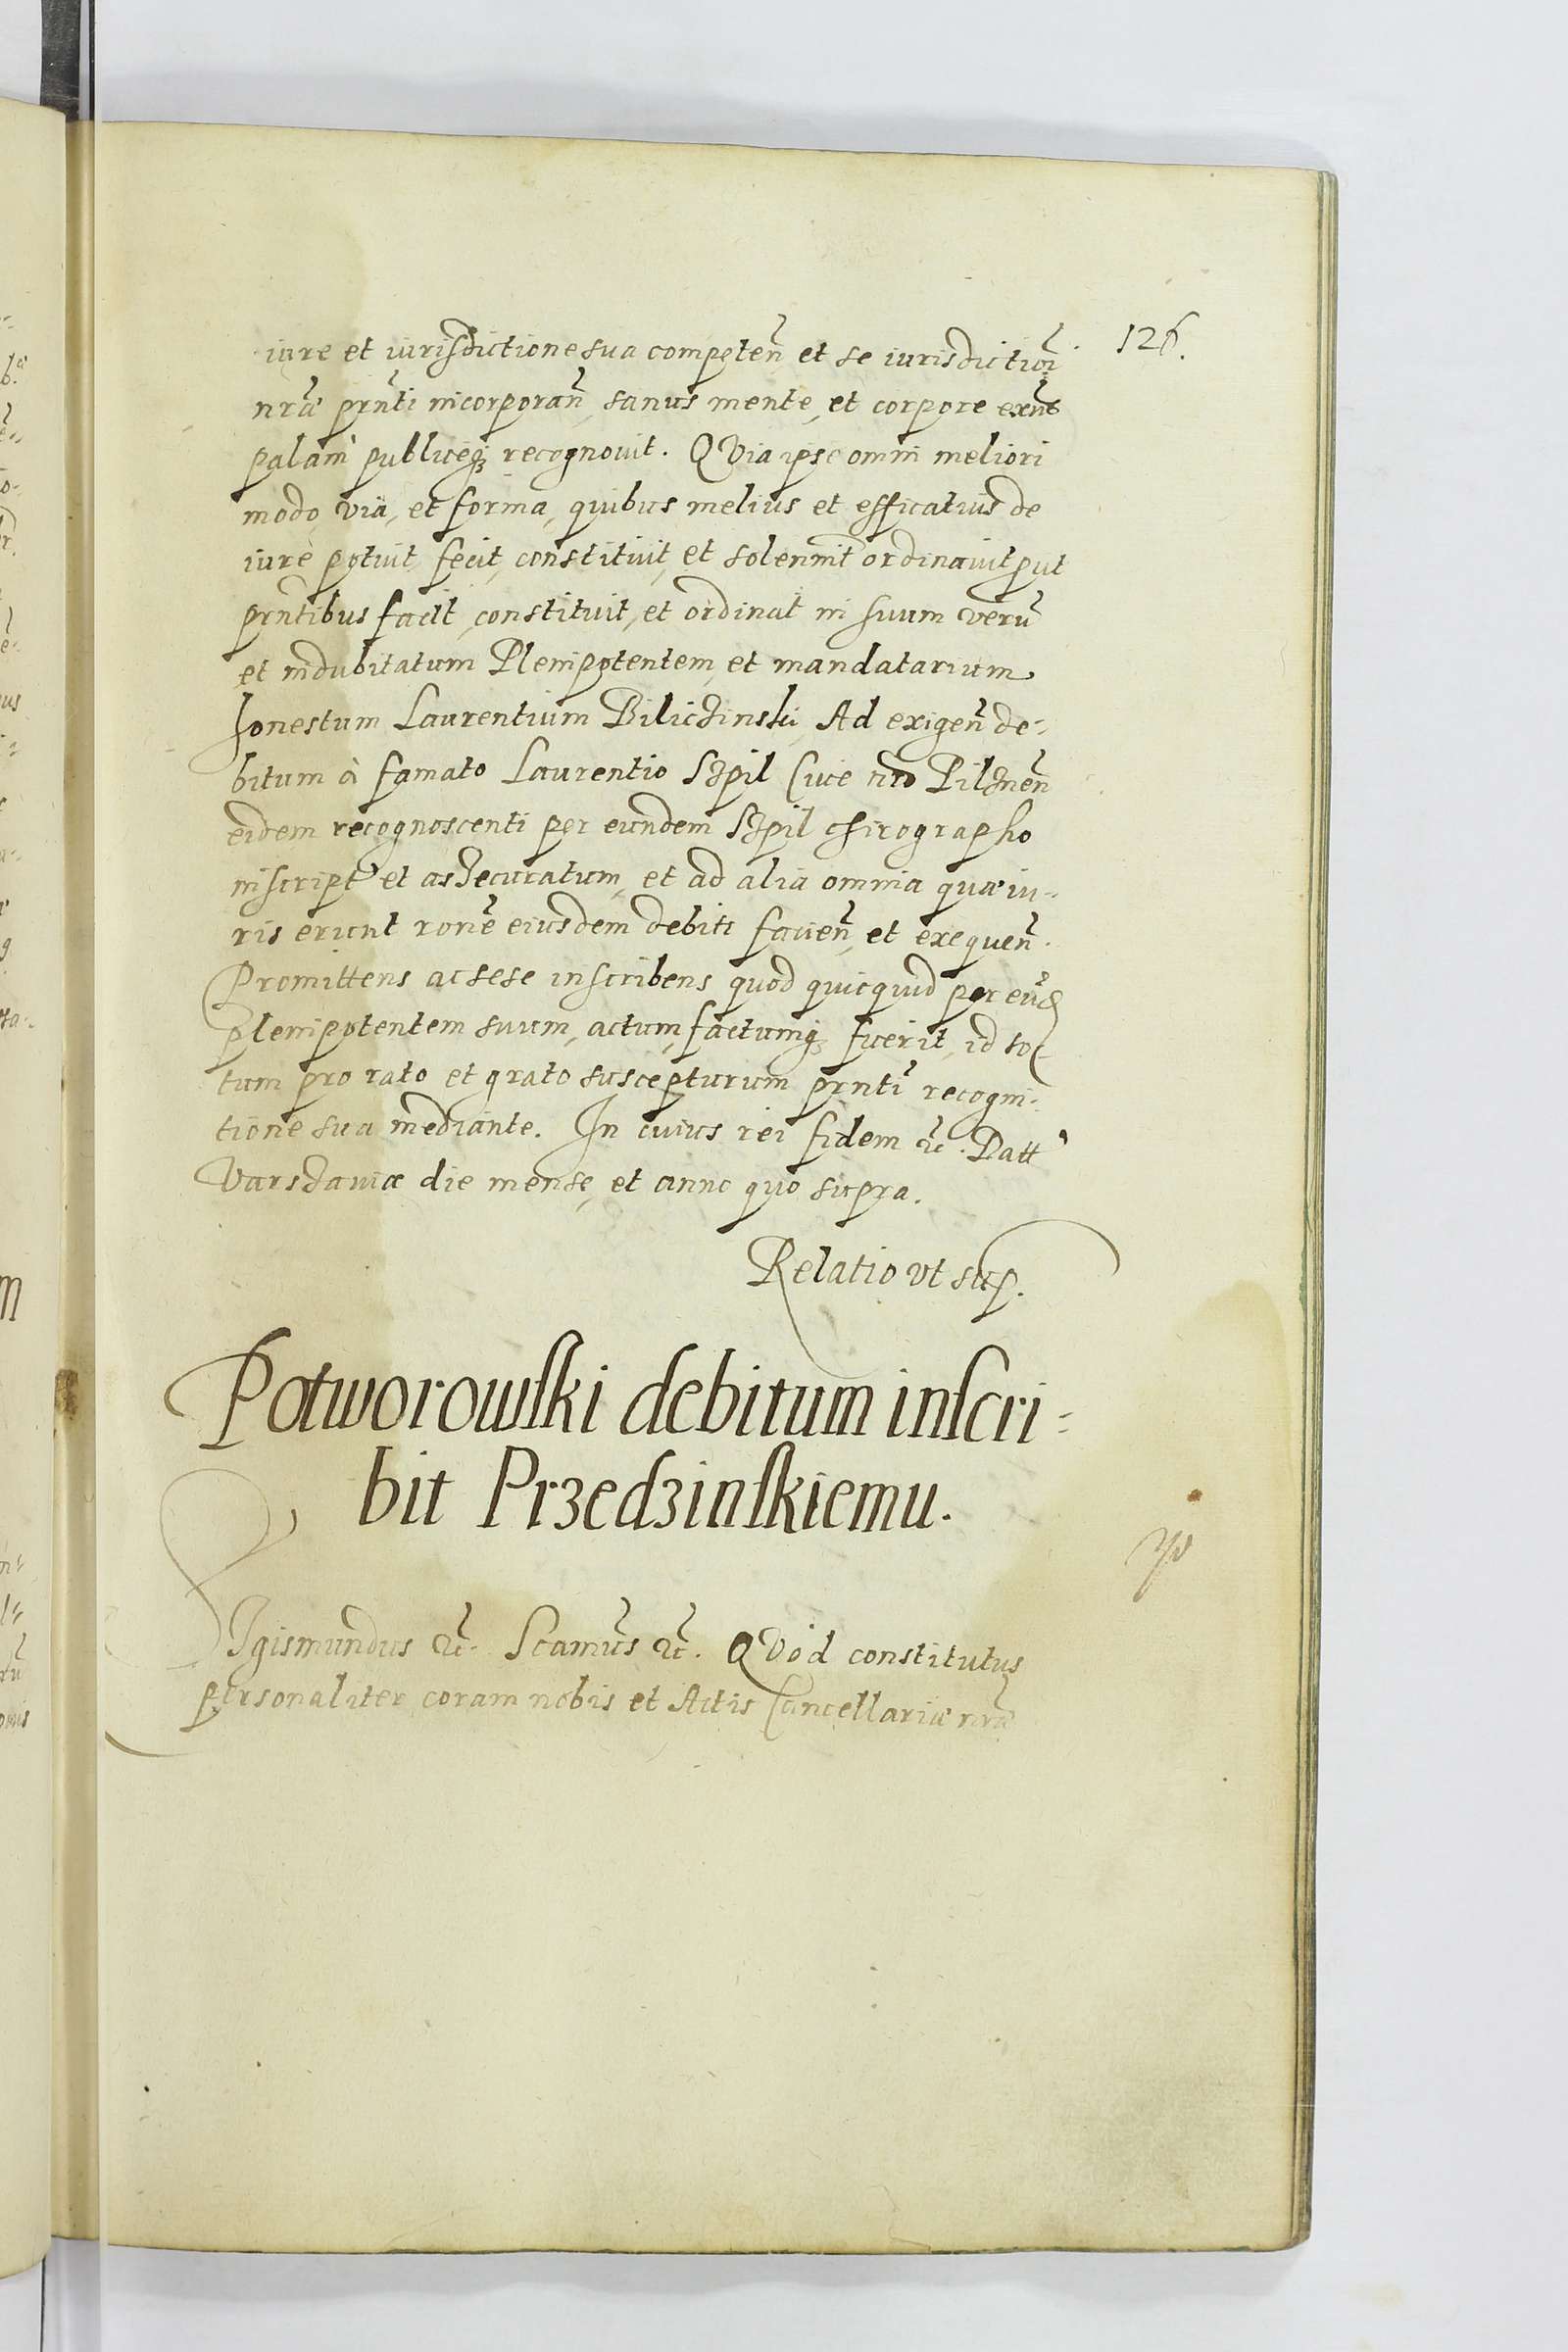 126.
iure et iurisdictione sua competeñ et se iurisdictioi
nrae prnti incorporañ, sanus mente, et corpore exñs
palam publiceq3 recognovit. QVia ipse omni meliori
modo, via, et forma, quibus melius et efficatius de
iure potuit, fecit, constituit, et solennit ordinavit put
prntibus facit, constituit, et ordinat in suum verũ
et indubitatum Plenipotentem, et mandatarium
honestum Laurentium Biliczinski, Ad exigeñ de-
bitum à famato Laurentio Szpil Cive Pilzneñ
eidem recognoscenti per eundem Szpil chirographo
inscript et assecuratum, et ad alia omnia quae iu-
ris erunt rone eiusdem debiti facieñ, et exequeñ.
Promittens ac sese inscribens quod quicquid per eũd
plenipotentem suum, actum, factumq3 fuerit, id to-
tum pro rato et grato suscepturum prnti recogni-
tione sua mediante. In cuius rei fidem &c. Datt
Varsaviae die mense, et anno quo supra.
Relatio vt sup.
Potworowski debitum inscri-
bit Przedzinskiemu.
SIgismundus &c. Scamus &c. QVod constitutus
personaliter coram nobis et Actis Cancellariae nrae